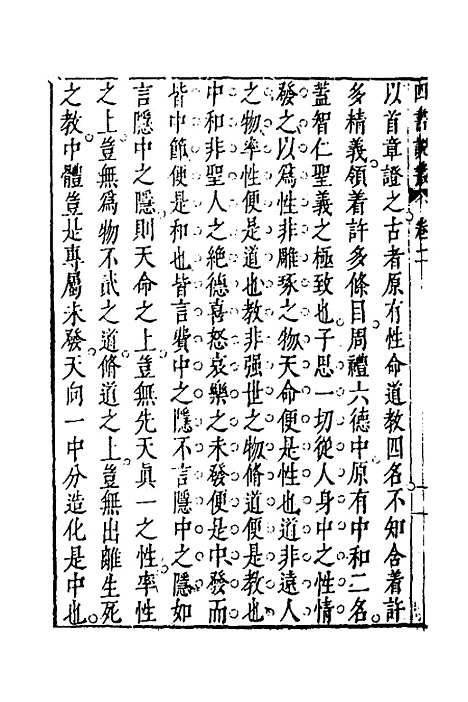 以首章證之古者原有性命道教四名不知舍着許
多精義領着許多條目周禮六德中原有中和二名
蓋智仁聖義之極致也子思一切從人身中之性情
發之以爲性非雕琢之物天命便是性也道非遠人
之物率性便是道也教非强世之物脩道便是教也
中和非聖人之絶德喜怒哀樂之未發便是中發而
皆中節便是和也皆言費中之隱不言隱中之隱如
言隱中之隱則天命之上豈無先天眞一之性率性
之上豈無爲物不貳之道脩道之上豈無出離生死
之教中體豈是專屬未發天向一中分造化是中也